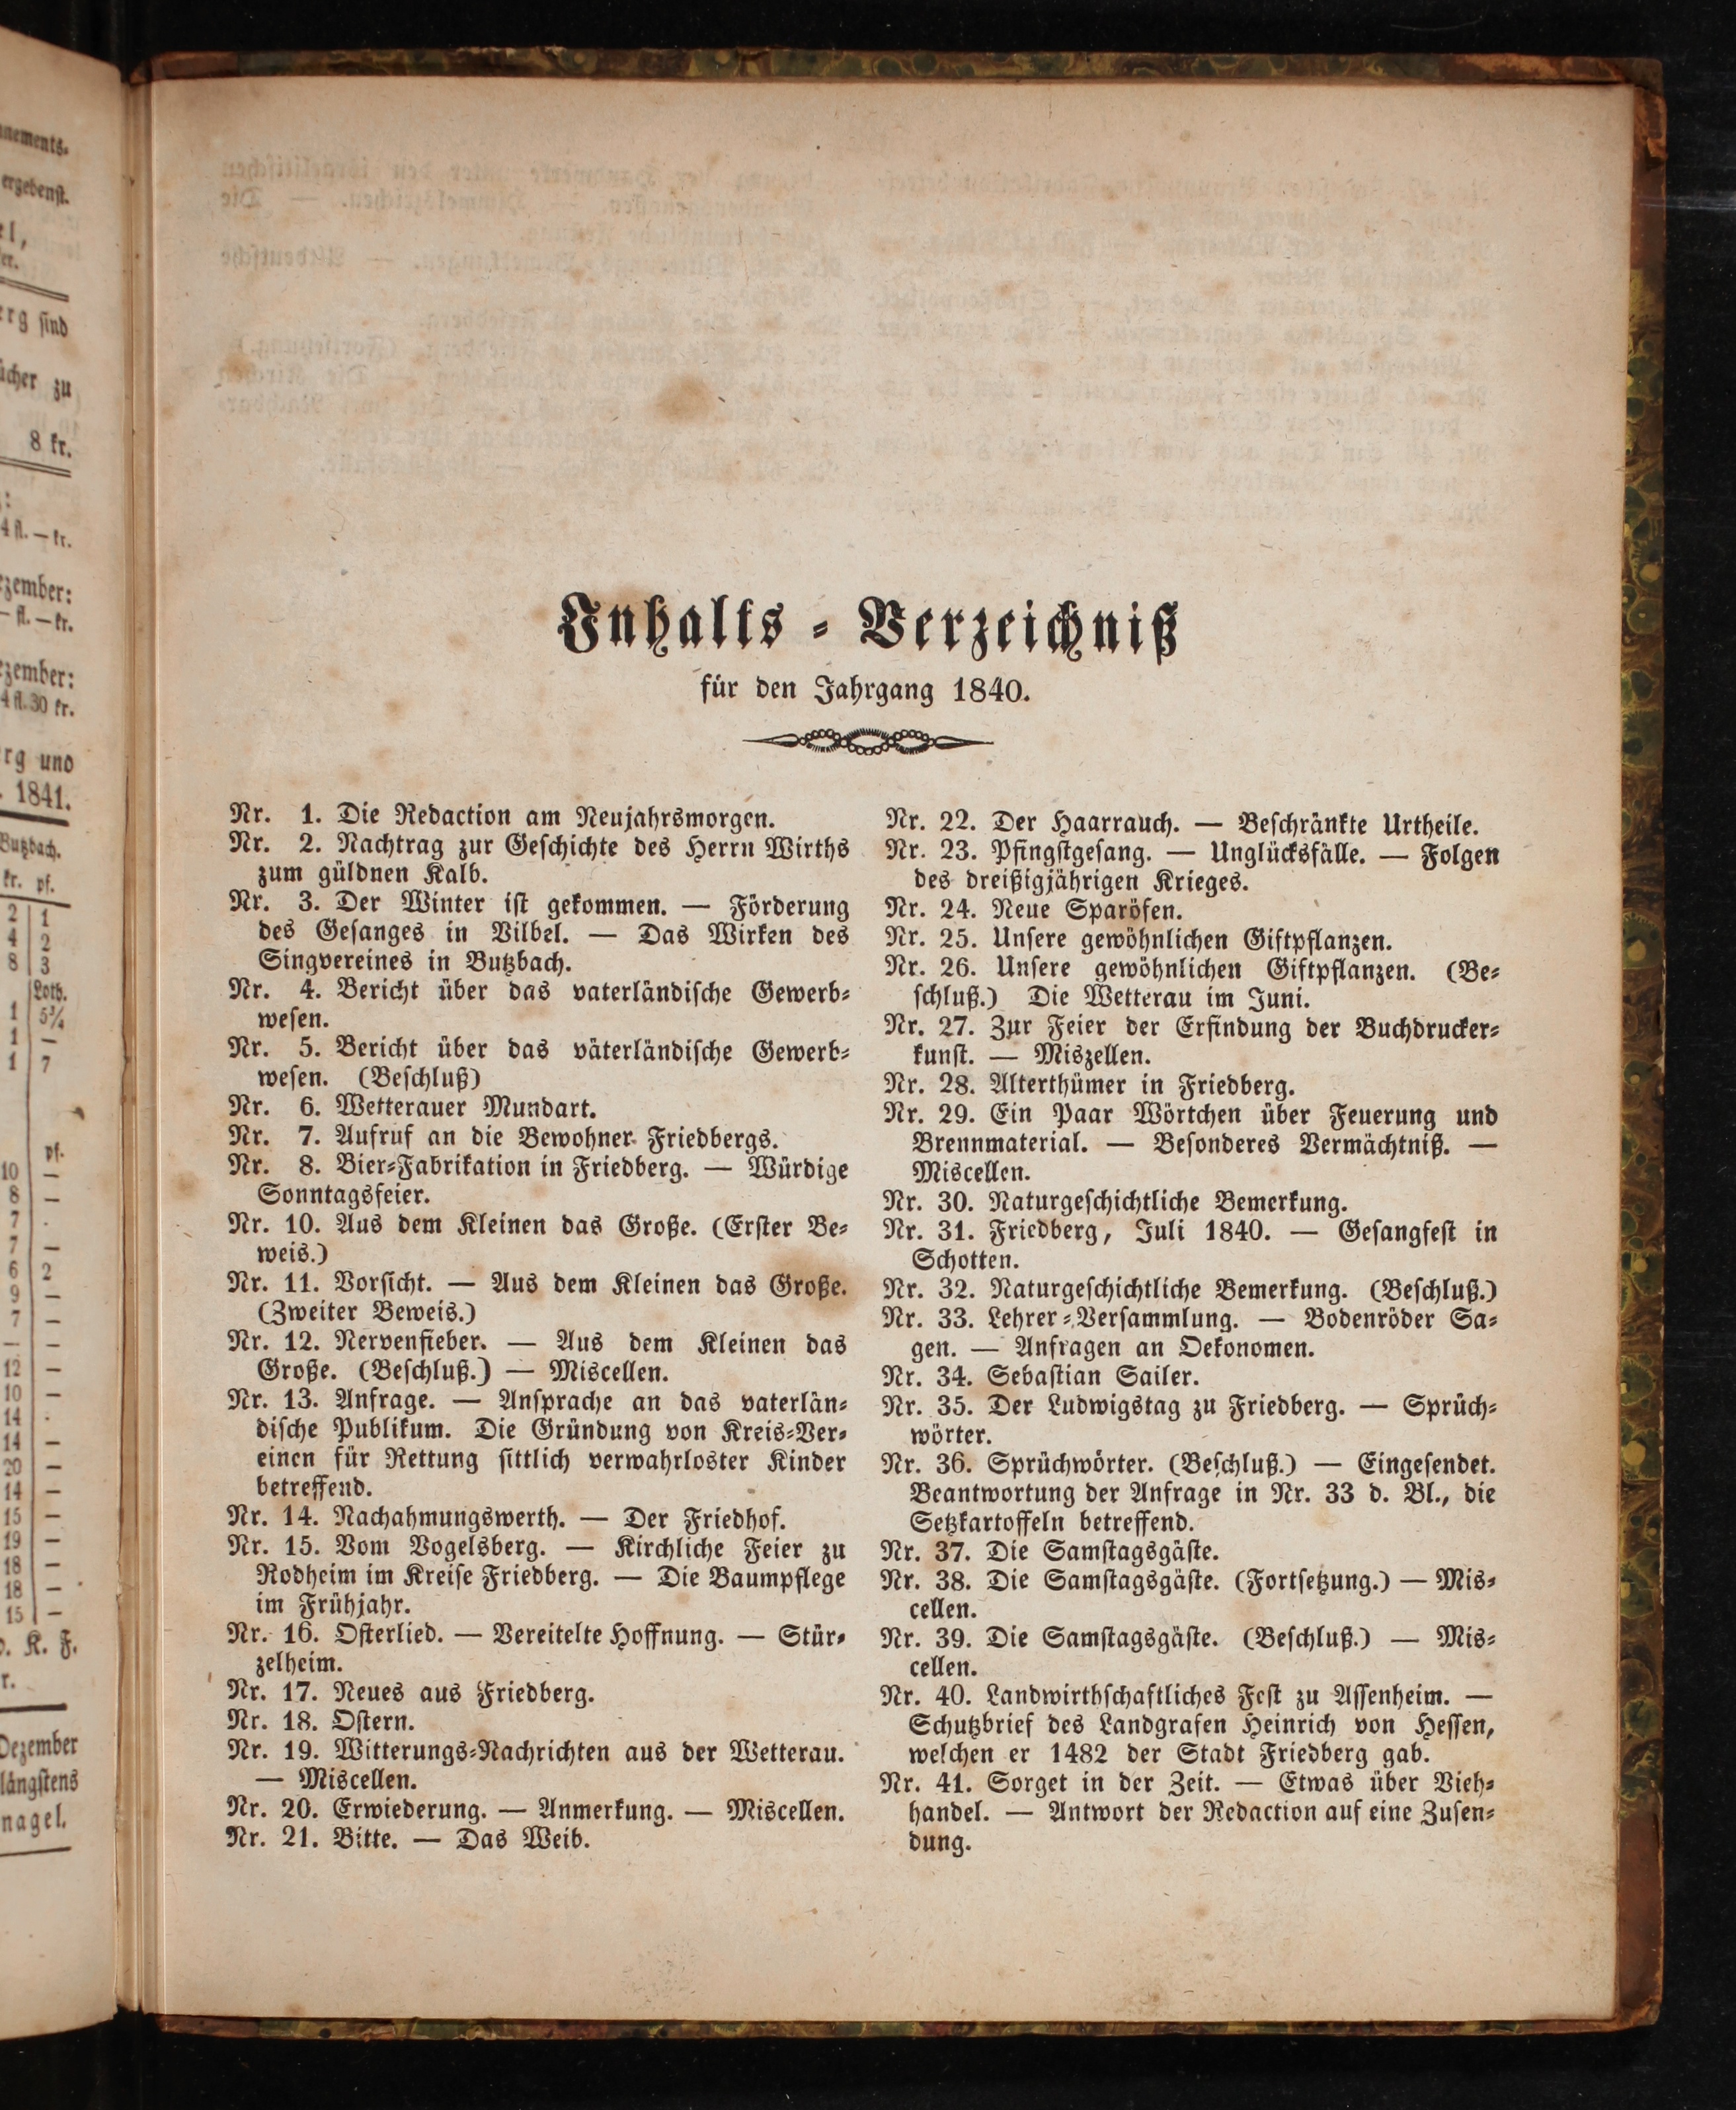 nements.
ergebenst.
el,
er.
rg sind
ücher zu
8 kr.
:
4 fl. — kr.
zember:
— fl. — kr.
zember:
4 fl. 30 kr.
rg und
. 1841.
Butzbach.
kr. pf.
2 1
4 2
8 3
Loth.
1 5¾
1 —
1 7
pf.
10 —
8 —
7 .
7 —
6 2
9 —
7 —
— —
12 —
10 —
14 .
14 —
20 —
14 —
15 —
19 —
18 —
18 —
15 —
. K. F.
r.
Dezember
längstens
nagel.
Inhalts-Verzeichniß
für den Jahrgang 1840.
Nr. 1. Die Redaction am Neujahrsmorgen.
Nr. 2. Nachtrag zur Geschichte des Herrn Wirths
zum güldnen Kalb.
Nr. 3. Der Winter ist gekommen. — Förderung
des Gesanges in Vilbel. — Das Wirken des
Singvereines in Butzbach.
Nr. 4. Bericht über das vaterländische Gewerb-
wesen.
Nr. 5. Bericht über das väterländische Gewerb-
wesen. (Beschluß)
Nr. 6. Wetterauer Mundart.
Nr. 7. Aufruf an die Bewohner Friedbergs.
Nr. 8. Bier-Fabrikation in Friedberg. — Würdige
Sonntagsfeier.
Nr. 10. Aus dem Kleinen das Große. (Erster Be-
weis.)
Nr. 11. Vorsicht. — Aus dem Kleinen das Große.
(Zweiter Beweis.)
Nr. 12. Nervenfieber. — Aus dem Kleinen das
Große. (Beschluß.) — Miscellen.
Nr. 13. Anfrage. — Ansprache an das vaterlän-
dische Publikum. Die Gründung von Kreis-Ver-
einen für Rettung sittlich verwahrloster Kinder
betreffend.
Nr. 14. Nachahmungswerth. — Der Friedhof.
Nr. 15. Vom Vogelsberg. — Kirchliche Feier zu
Rodheim im Kreise Friedberg. — Die Baumpflege
im Frühjahr.
Nr. 16. Osterlied. — Vereitelte Hoffnung. — Stür-
zelheim.
Nr. 17. Neues aus Friedberg.
Nr. 18. Ostern.
Nr. 19. Witterungs-Nachrichten aus der Wetterau.
— Miscellen.
Nr. 20. Erwiederung. — Anmerkung. — Miscellen.
Nr. 21. Bitte. — Das Weib.
Nr. 22. Der Haarrauch. — Beschränkte Urtheile.
Nr. 23. Pfingstgesang. — Unglücksfälle. — Folgen
des dreißigjährigen Krieges.
Nr. 24. Neue Sparöfen.
Nr. 25. Unsere gewöhnlichen Giftpflanzen.
Nr. 26. Unsere gewöhnlichen Giftpflanzen. (Be-
schluß.) Die Wetterau im Juni.
Nr. 27. Zur Feier der Erfindung der Buchdrucker-
kunst. — Miszellen.
Nr. 28. Alterthümer in Friedberg.
Nr. 29. Ein Paar Wörtchen über Feuerung und
Brennmaterial. — Besonderes Vermächtniß. —
Miscellen.
Nr. 30. Naturgeschichtliche Bemerkung.
Nr. 31. Friedberg, Juli 1840. — Gesangfest in
Schotten.
Nr. 32. Naturgeschichtliche Bemerkung. (Beschluß.)
Nr. 33. Lehrer-Versammlung. — Bodenröder Sa-
gen. — Anfragen an Oekonomen.
Nr. 34. Sebastian Sailer.
Nr. 35. Der Ludwigstag zu Friedberg. — Sprüch-
wörter.
Nr. 36. Sprüchwörter. (Beschluß.) — Eingesendet.
Beantwortung der Anfrage in Nr. 33 d. Bl., die
Setzkartoffeln betreffend.
Nr. 37. Die Samstagsgäste.
Nr. 38. Die Samstagsgäste. (Fortsetzung.) — Mis-
cellen.
Nr. 39. Die Samstagsgäste. (Beschluß.) — Mis-
cellen.
Nr. 40. Landwirthschaftliches Fest zu Assenheim. —
Schutzbrief des Landgrafen Heinrich von Hessen,
welchen er 1482 der Stadt Friedberg gab.
Nr. 41. Sorget in der Zeit. — Etwas über Vieh-
handel. — Antwort der Redaction auf eine Zusen-
dung.